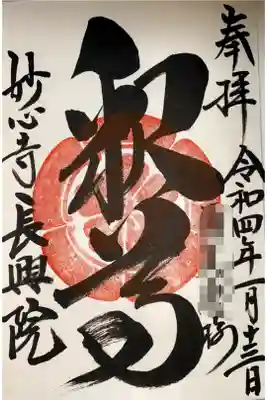 奉拝
令和四年一月十三日
様
釈尊
妙心寺長興院